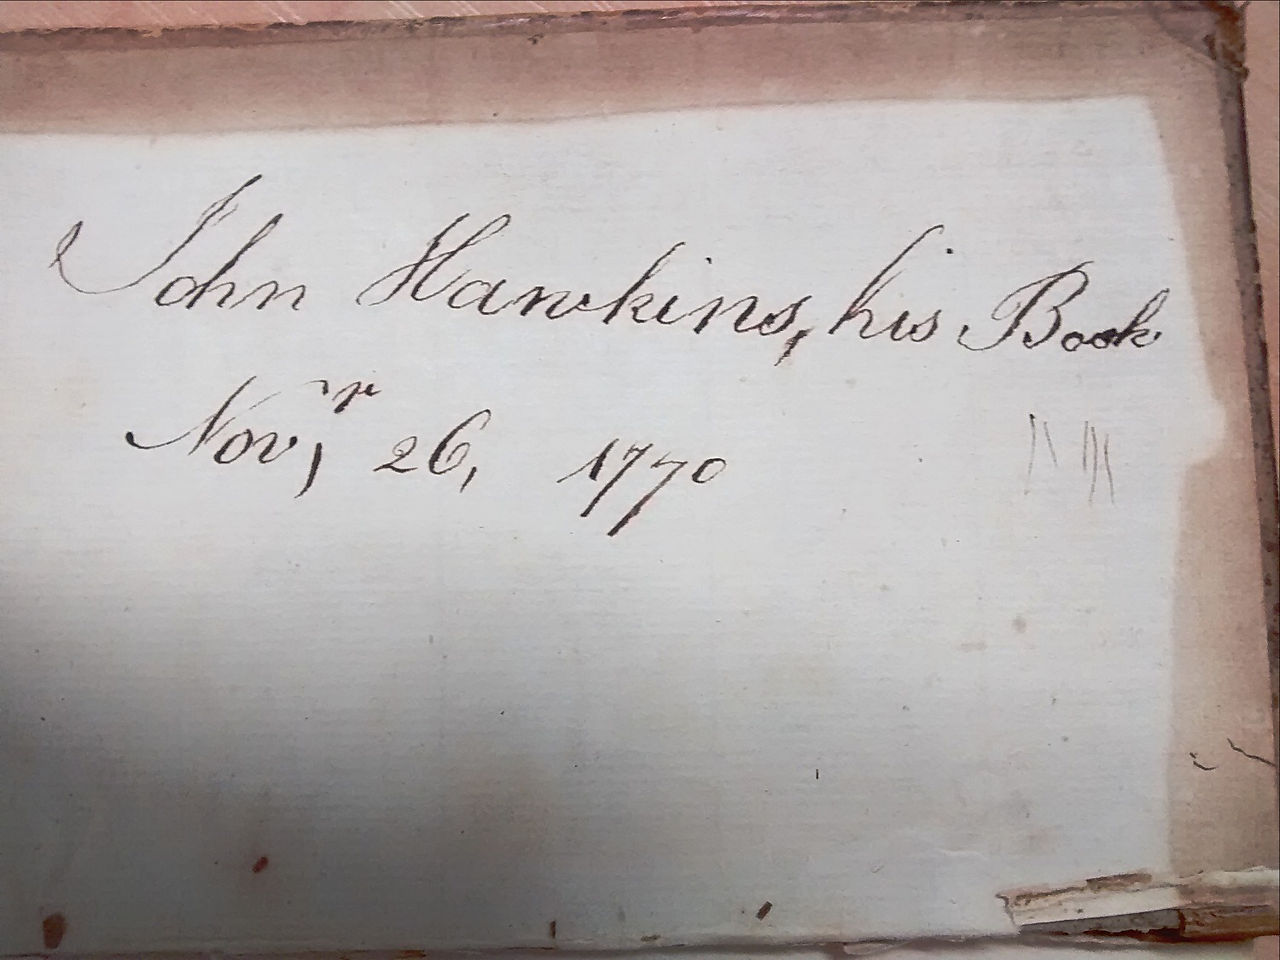 John Hawkins, his Book
Nov,r 26, 1770